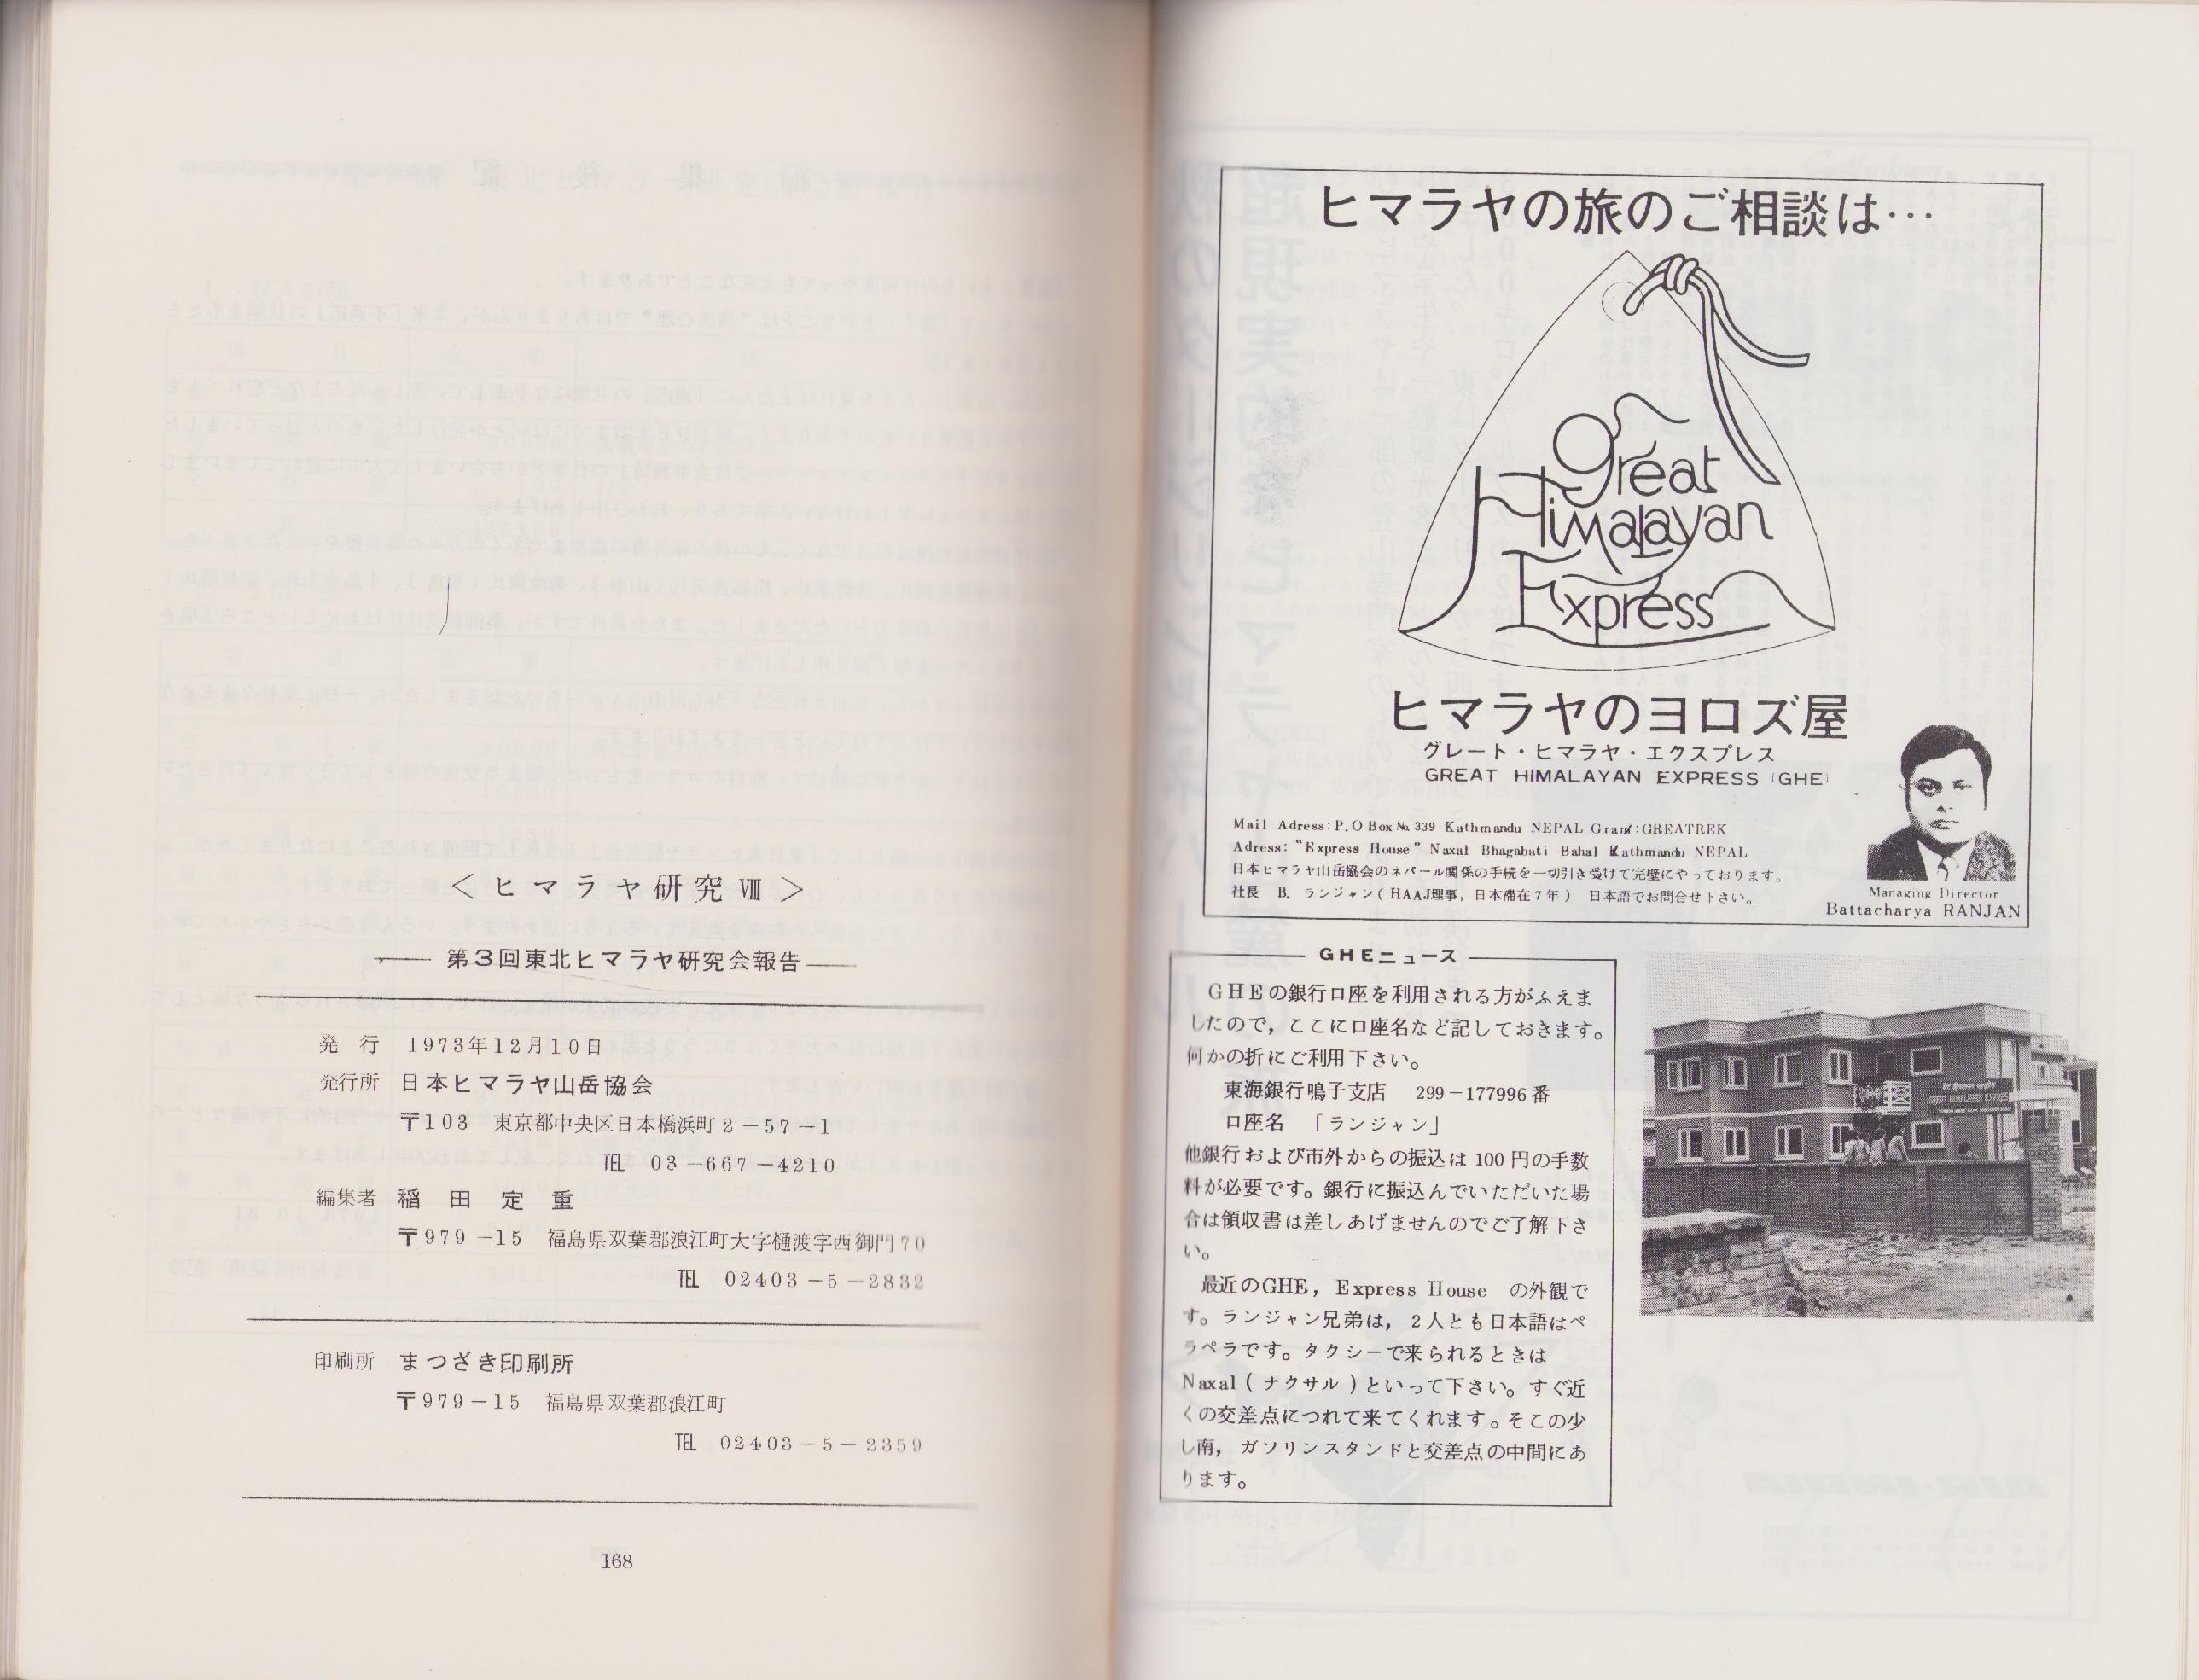 ＜ヒマラヤ研究Ⅷ＞
第3回東北ヒマラヤ研究会報告
発行 1973年12月10日
発行所 日本ヒマラヤ山岳協会
〒103 東京都中央区日本橋浜町2－57－1
TEL 03－667－4210
編集者 稲田定重
〒979－15 福島県双葉郡浪江町大字樋渡字西御門70
TEL 02403－5－2832
印刷所 まつざき印刷所
〒979－15 福島県双葉郡浪江町
TEL 02403－5－2359
168
ヒマラヤの旅のご相談は…
Great
Himalayan
Express
ヒマラヤのヨロズ屋
グレート・ヒマラヤ・エクスプレス
GREAT HIMALAYAN EXPRESS (GHE)
Mail Adress: P.O Box No. 339 Kathmandu NEPAL Gram: GREATREK
Adress: "Express House" Naxal Bhagabati Bahal Kathmandu NEPAL
日本ヒマラヤ山岳協会のネパール関係の手続を一切引き受けて完璧にやっております。
社長 B. ランジャン(HAAJ理事，日本滞在7年) 日本語でお問合せ下さい。
Managing Director
Battacharya RANJAN
GHEニュース
GHEの銀行口座を利用される方がふえま
したので，ここに口座名など記しておきます。
何かの折にご利用下さい。
東海銀行鳴子支店 299－177996番
口座名 「ランジャン」
他銀行および市外からの振込は100円の手数
料が必要です。銀行に振込んでいただいた場
合は領収書は差しあげませんのでご了解下さ
い。
最近のGHE，Express House の外観で
す。ランジャン兄弟は，2人とも日本語はペ
ラペラです。タクシーで来られるときは
Naxal(ナクサル)といって下さい。すぐ近
くの交差点につれて来てくれます。そこの少
し南，ガソリンスタンドと交差点の中間にあ
ります。
GREAT HIMALAYAN EXPRESS